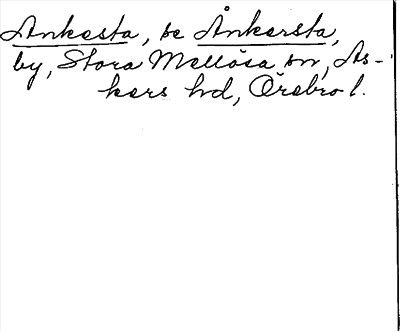 Ankesta, se Ånkersta,
by, Stora Mellösa sn, As-
kers hd, Örebro l.